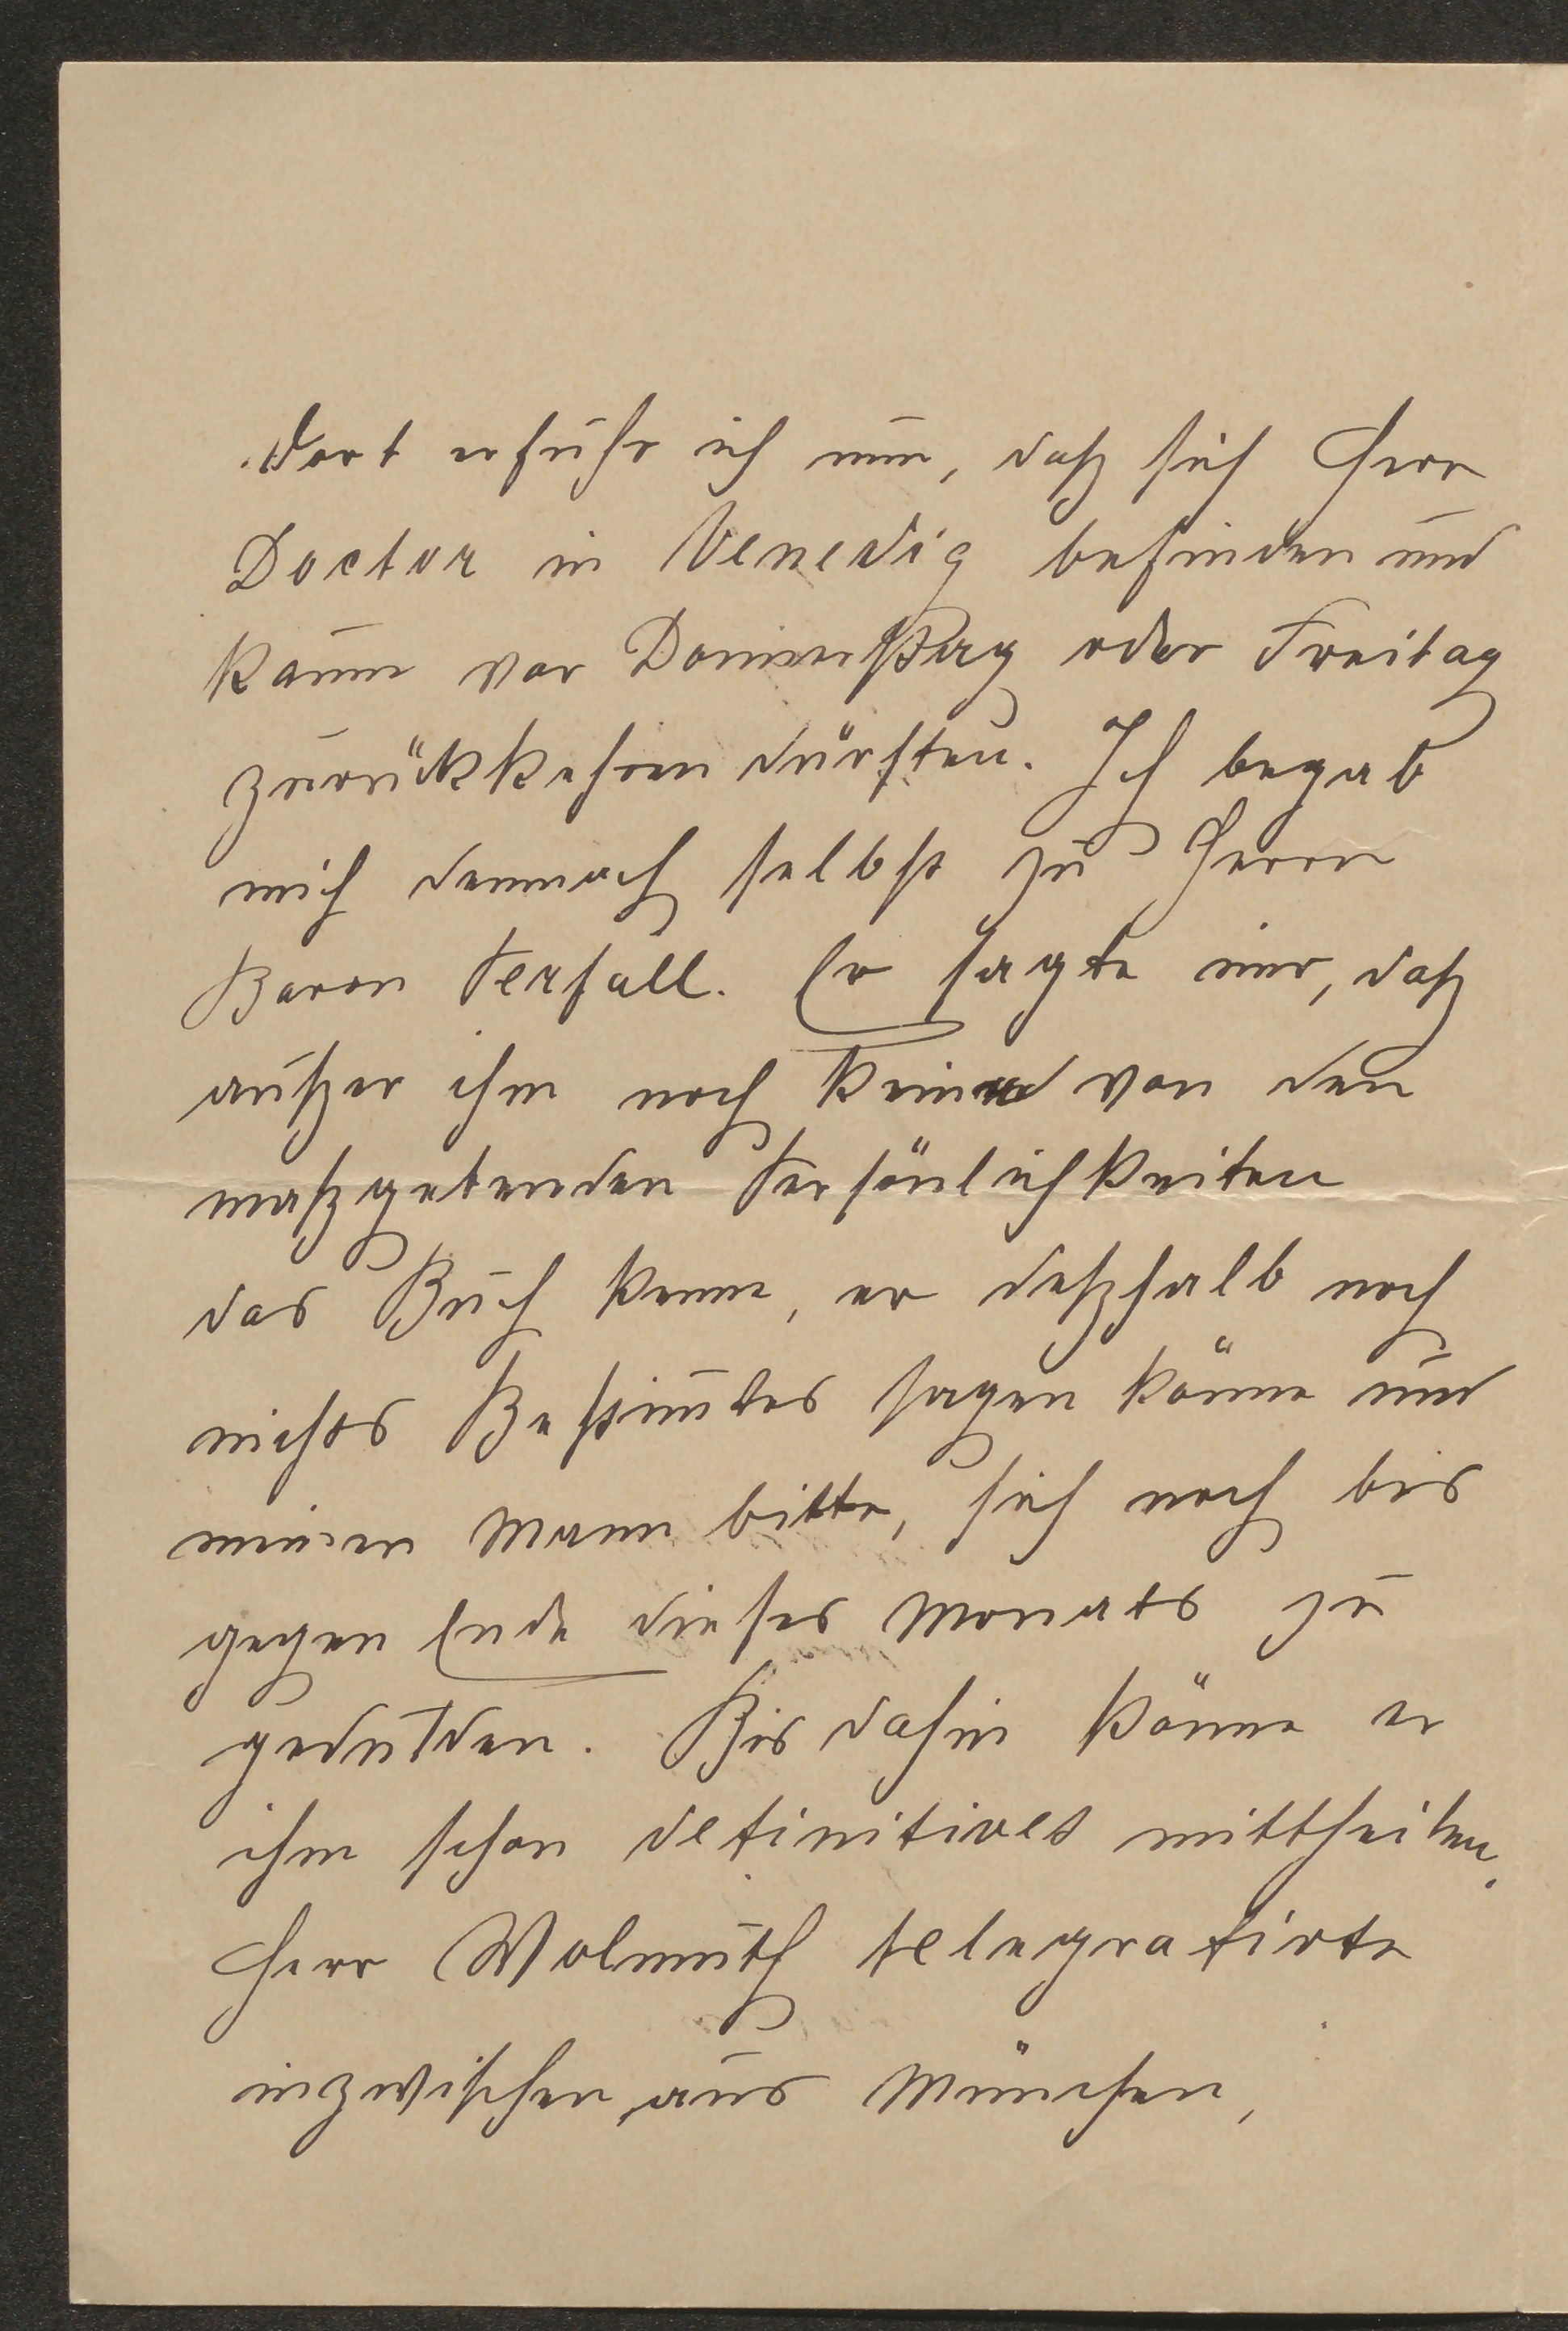 Dort erfuhr ich nun, daß sich Herr
Doctor in Venedig befinden und
kaum vor Donnerstag oder Freitag
zurückkehren dürften. Ich begab
mich demnach selbst zu Herrn
Baron Perfall. Er sagte mir, daß
außer ihm noch keine von den
maßgebenden Persönlichkeiten
das Buch kenne, er deßhalb noch
nichts Bestim̅tes sagen könne und
meinen Mann bitte, sich noch bis
gegen Ende dieses Monats zu
gedulden. Bis dahin könne er
ihm schon definitives mittheilen.
Herr Wolmuth telegrafirte
inzwischen aus München,